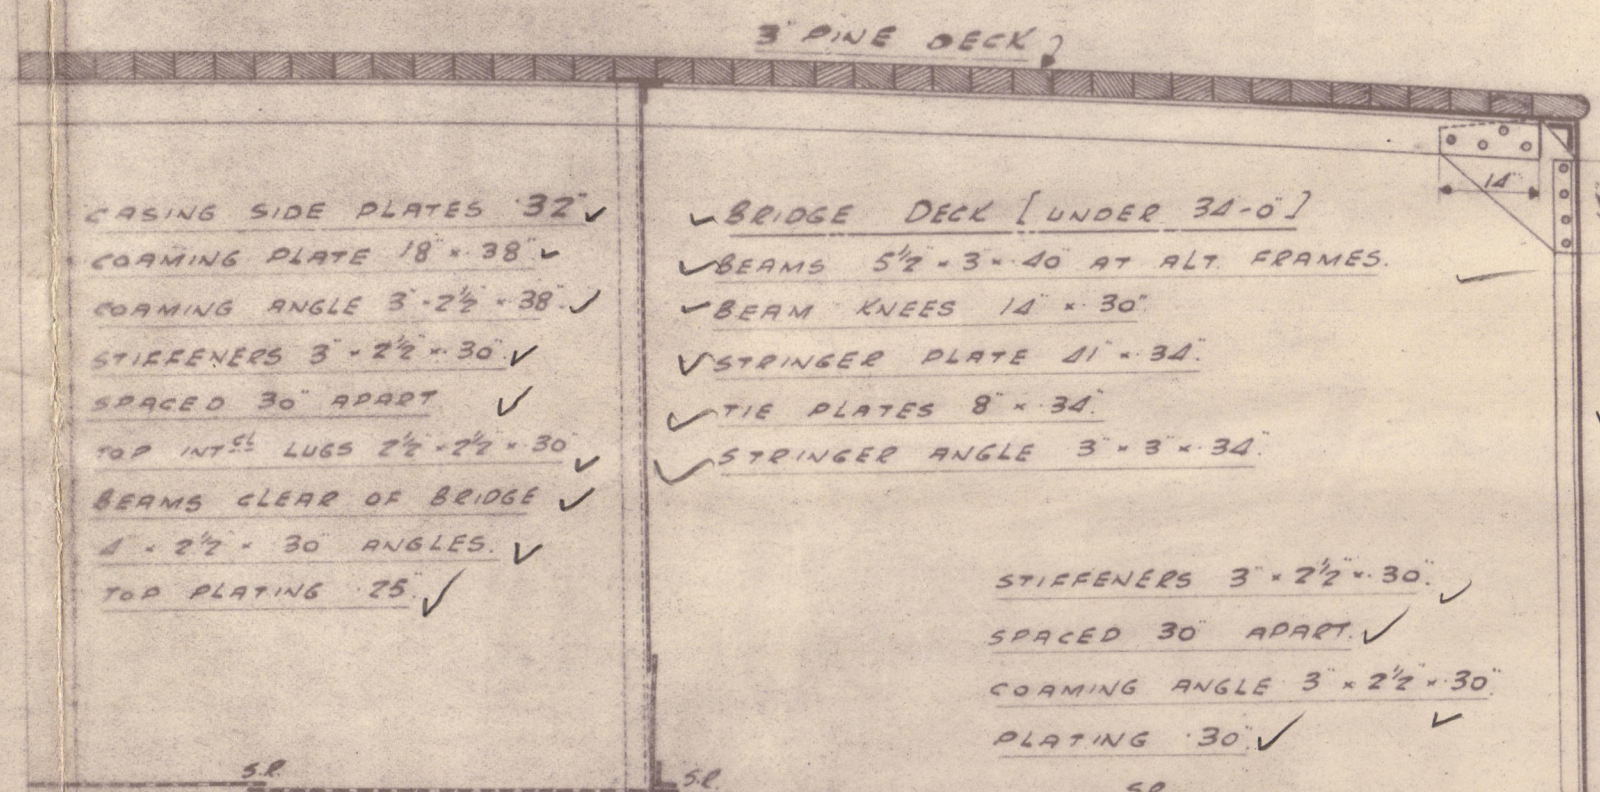 3" PINE DECK
14"
CASING SIDE PLATES ·32"
COAMING PLATE 18" × ·38"
COAMING ANGLE 3" × 2½" × ·38"
STIFFENERS 3" × 2½" × ·30"
SPACED 30" APART
TOP INTCL LUGS 2½" × 2½" × ·30"
BEAMS CLEAR OF BRIDGE
4" × 2½" × ·30" ANGLES.
TOP PLATING ·25"
BRIDGE DECK [UNDER 34-0"]
BEAMS 5½" × 3" × ·40" AT ALT. FRAMES.
BEAM KNEES 14" × ·30"
STRINGER PLATE 41" × ·34"
TIE PLATES 8" × ·34"
STRINGER ANGLE 3" × 3" × ·34"
STIFFENERS 3" × 2½" × ·30"
SPACED 30" APART.
COAMING ANGLE 3" × 2½" × ·30"
PLATING ·30"
S.R.
S.R.
S.R.